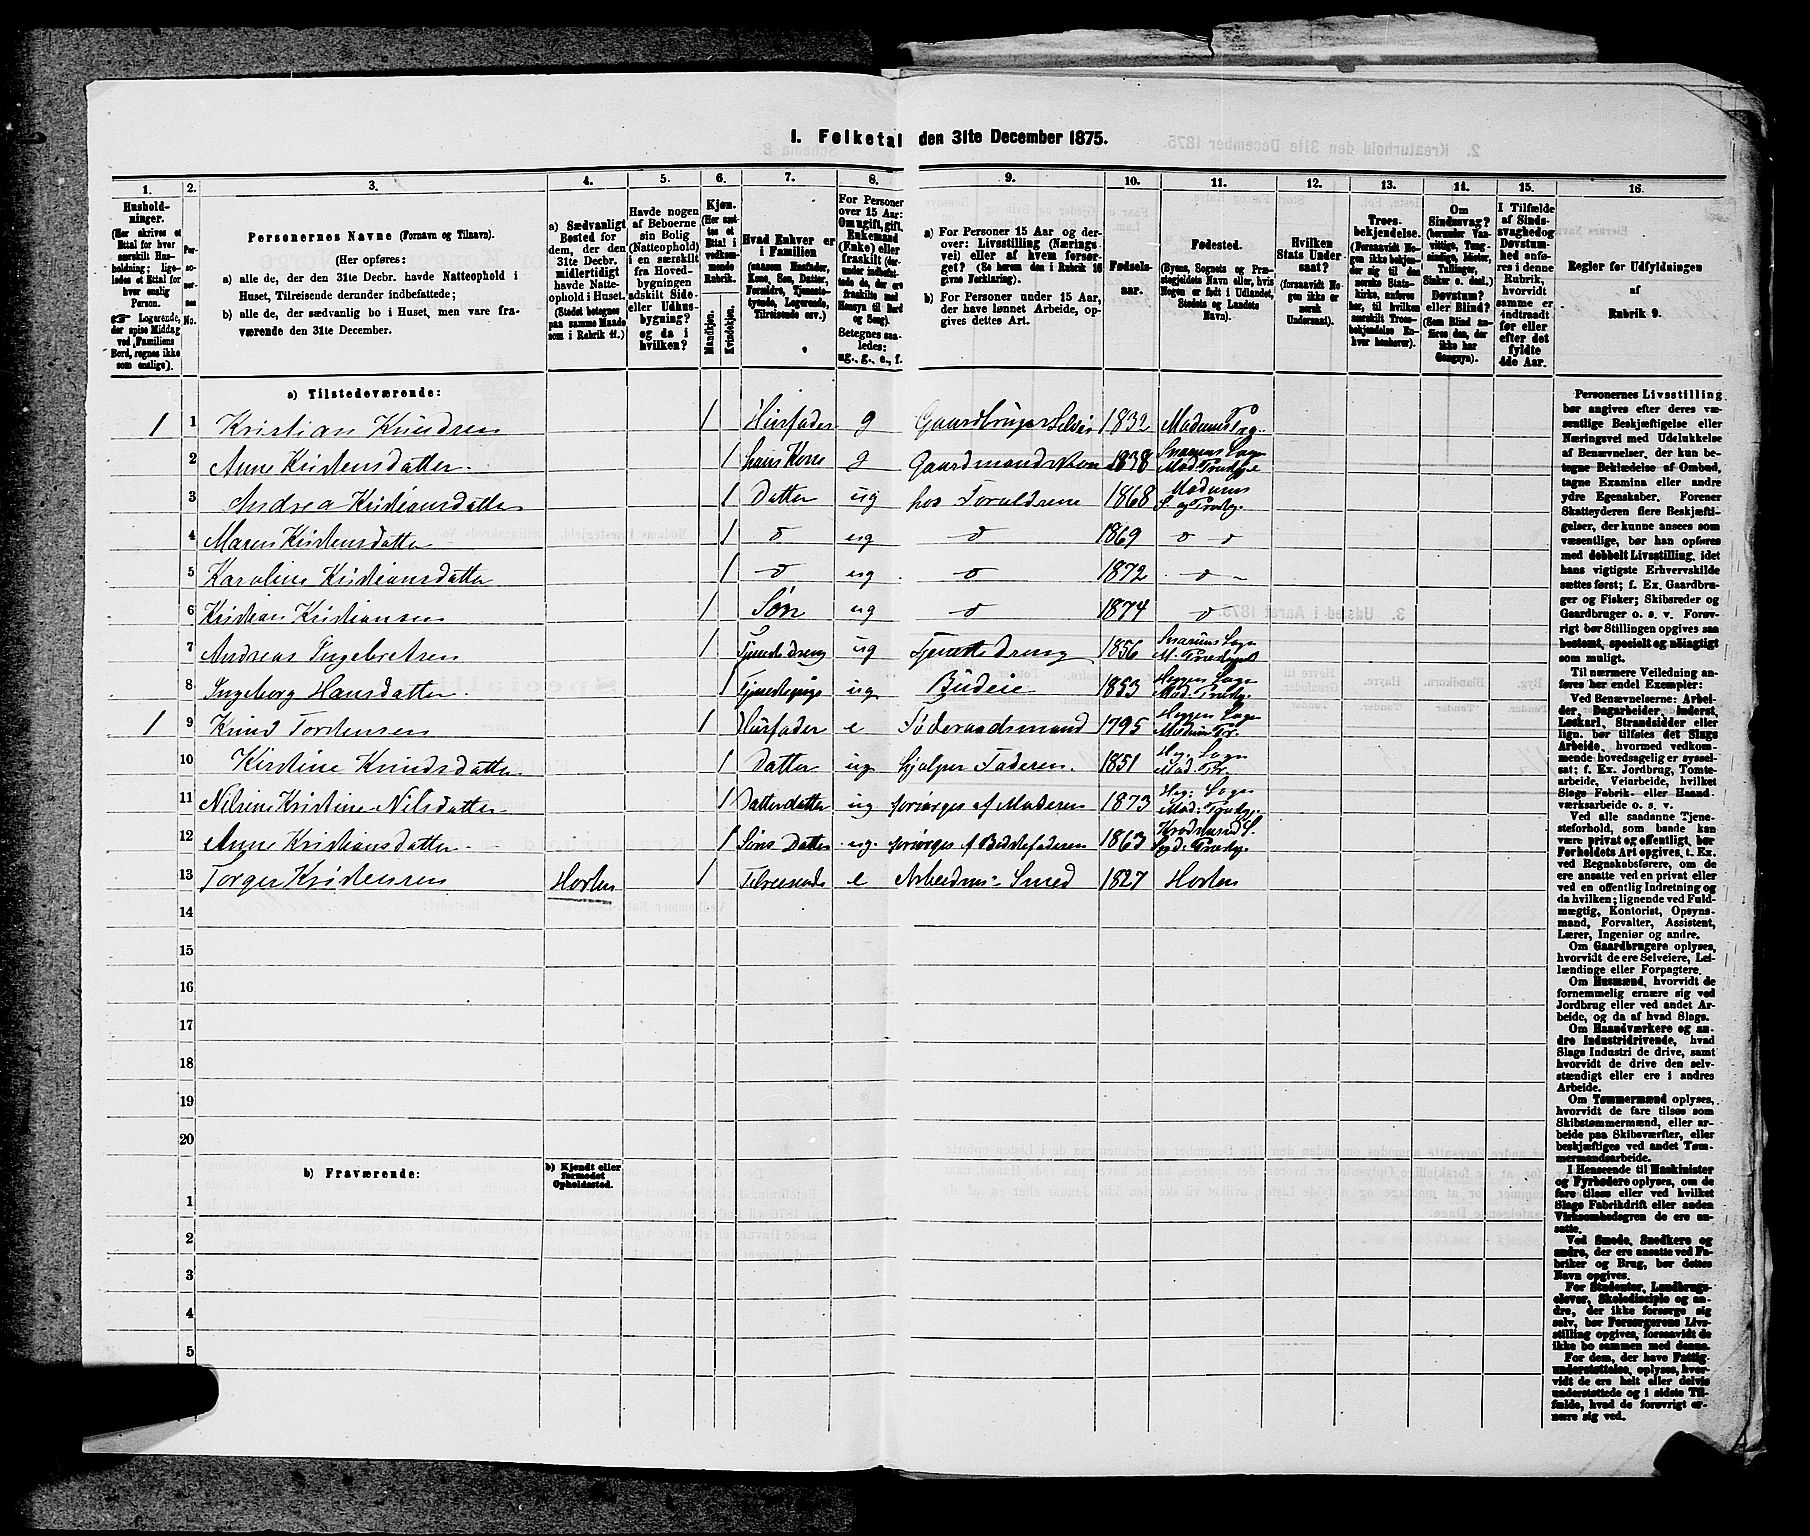 1. Folketal den 31te December 1875.
1. 2. 3. 4. 5. 6. 7. 8. 9. 10. 11. 12. 13. 14. 15. 16.
Husholdninger.
(Her skrives et Ettal for hver særskilt Husholdning; ligeledes et Ettal for hver enslig Person.
☞ Logerende, der spise Middag ved Familiens Bord, regnes ikke som enslige).
Personernes No.
Personernes Navne (Fornavn og Tilnavn).
(Her opføres:
a) alle de, der den 31te Decbr. havde Natteophold i Huset, Tilreisende derunder indbefattede;
b) alle de, der sædvanlig bo i Huset, men vare fraværende den 31te December.
a) Sædvanligt Bosted for dem, der den 31te Decbr. midlertidigt havde Natteophold i Huset. (Stedet betegnes paa samme Maade som i Rubrik 11.)
Havde nogen af Beboerne sin Bolig (Natteophold) i en særskilt fra Hovedbygningen adskilt Side- eller Udhusbygning? og da i hvilken?
Kjøn. (Her sættes et Ettal i vedkommende Rubrik.
Mandkjøn. Kvindekjøn.
Hvad Enhver er i Familien
(saasom Husfader, Kone, Søn, Datter, Forældre, Tjenestetyende, Logerende, Tilreisende osv.)
For Personer over 15 Aar: Om ugift, gift, Enkemand (Enke) eller fraskilt (derunder indbefattede de, der ere fraskilte med Hensyn til Bord og Seng).
Betegnes saaledes: ug., g., e., f.
a) For Personer 15 Aar og derover: Livsstilling (Næringsvei) eller af hvem forsørget? (Se herom den i Rubrik 16 givne Forklaring).
b) For Personer under 15 Aar, der have lønnet Arbeide, opgives dettes Art.
Fødselsaar.
Fødested.
(Byens, Sognets og Præstegjeldets Navn eller, hvis Nogen er født i Udlandet, Stedets og Landets Navn).
Hvilken Stats Undersaat?
(forsaavidt Nogen ikke er norsk Undersaat).
Troesbekjendelse.
(Forsaavidt Nogen ikke bekjender sig til den norske Statskirke, anføres her, til hvilken særskilt Troesbekjendelse Enhver henhører).
Om Sindssvag? (herunder Vanvittige, Tungsindige, Idioter, Tullinger, Sinker o. desl.) Døvstum? eller Blind? (Som Blind anføres den, der ikke har Gangsyn).
I Tilfælde af Sindssvaghed og Døvstumhed anføres i denne Rubrik, hvorvidt samme er indtraadt før eller efter det fyldte 4de Aar.
Regler for Udfyldningen af Rubrik 9.
a) Tilstedeværende:
1 1 Kristian Knudsen 1 Husfader g Gaardbruger Selvei 1832 Modums Præg.
2 Anne Kristensdatter 1 hans Kone g Gaardmandskone 1838 Snarum Sogn Mod. Prstgj.
3 Andrea Kristiansdatter 1 Datter ug hos Foraldrene 1868 Modums S. og Prstgj.
4 Maren Kristensdatter 1 d ug d 1869 d d
5 Karoline Kristiansdatter 1 d ug d 1872 d
6 Kristian Kristiansen 1 Søn ug d 1874 d
7 Andreas Ingebretsen 1 Tjenestedreng ug Tjenestedreng 1856 Snarums Sogn
8 Ingeborg Hansdatter 1 Tjenestepige ug Budeie 1853 Heggen Sogn Mod. Prstgj.
1 9 Knud Torstensen 1 Husfader e Føderaadsmand 1795 Heggen Sogn Modum Pr.
10 Kirstine Knudsdatter 1 Datter ug hjælper Faderen 1851 Heg. Sogn Mod. Pr.
11 Nilsine Kristine Nilsdatter 1 Datterdatter ug forsørges af Moderen 1873 Heg: Sogn Mod: Prstgj.
12 Anne Kristiansdatter 1 Søns Datter ug forsørges af Bedstefaderen 1863 Krødsherred S.
13 Torger Kristensen Horten 1 Tilreisende e Arbeidus: Smed 1827 Horten
14
15
16
17
18
19
20
b) Fraværende:
b) Kjendt eller formodet Opholdssted.
1
2
3
4
5
Personernes Livsstilling
bør angives efter deres væ-
sentlige Beskjæftigelse eller
Næringsvei med Udelukkelse
af Benævnelser, der kun be-
tegne Beklædelse af Ombud,
tagne Examina eller andre
ydre Egenskaber. Forener
Skatteyderen flere Beskjæfti-
gelser, der kunne ansees som
væsentlige, bør han opføres
med dobbelt Livsstilling, idet
hans vigtigste Erhvervskilde
sættes først; f. Ex. Gaardbru-
ger og Fisker; Skibsreder og
Gaardbruger o. s. v. Forøv-
rigt bør Stillingen opgives saa
bestemt, specielt og nøiagtigt
som muligt.
Til nærmere Veiledning an-
føres her endel Exempler:
Ved Benævnelserne: Arbei-
der, Dagarbeider, Inderst,
Løskarl, Strandsidder eller
lign. bør tilføies det Slags
Arbeide, hvormed vedkom-
mende hovedsagelig er syssel-
sat; f. Ex. Jordbrug, Tomte-
arbeide, Veiarbeide, hvilket
Slags Fabrik- eller Haand-
værksarbeide o. s. v.
Ved alle saadanne Tje-
nesteforhold, som baade kan
være privat og offentligt, bør
Forholdets Art opgives, t. Ex.
ved Regnskabsførere, om de
ere ansatte ved en privat eller
ved en offentlig Indretning og
da hvilken; lignende ved Fuld-
mægtig, Kontorist, Opsyns-
mand, Forvalter, Assistent,
Lærer, Ingeniør og andre.
Om Gaardbrugere oplyses,
hvorvidt de ere Selveiere, Lei-
lændinge eller Forpagtere.
Om Husmænd, hvorvidt de
fornemmelig ernære sig ved
Jordbrug eller ved andet Ar-
beide, og da af hvad Slags.
Om Haandværkere og an-
dre Industridrivende, hvad
Slags Industri de drive, samt
hvorvidt de drive den selv-
stændigt eller ere i andres
Arbeide.
Om Tømmermænd oplyses,
hvorvidt de fare tilsøs som
Skibstømmermænd, eller ar-
beide paa Skibsværfter, eller
beskjæftiges ved andet Tøm-
mermandsarbeide.
I Henseende til Maskinister
og Fyrbødere oplyses, om de
fare tilsøs eller ved hvilket
Slags Fabrikdrift eller anden
Virksomhedsgren de ere an-
satte.
Ved Smede, Snedkere og
andre, der ere ansatte ved Fa-
briker og Brug, bør dettes
Navn opgives.
For Studenter, Landbrugs-
elever, Skoledisciple og an-
dre, der ikke forsørge sig
selv, bør Forsørgerens Livs-
stilling opgives, forsaavidt de
ikke bo sammen med denne.
For dem, der have Fattig-
understøttelse, oplyses, hvor-
vidt de ere helt eller delvis
understøttede og i sidste Til-
fælde, hvad de forøvrigt er-
nære sig ved.